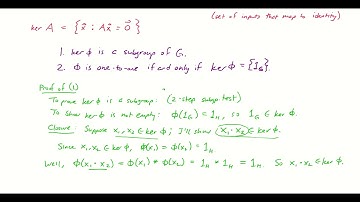 (set of inputs that map to identity)
ker A = { x⃗ : Ax⃗ = 0⃗ }
1. ker φ is a subgroup of G.
2. φ is one-to-one if and only if ker φ = {1_G}.
Proof of (1)
To prove ker φ is a subgroup: (2-step subgp. test)
To show ker φ is not empty: φ(1_G) = 1_H, so 1_G ∈ ker φ.
Closure: Suppose x₁, x₂ ∈ ker φ; I'll show x₁·x₂ ∈ ker φ.
Since x₁, x₂ ∈ ker φ, φ(x₁) = φ(x₂) = 1_H.
Well, φ(x₁·x₂) = φ(x₁) * φ(x₂) = 1_H * 1_H = 1_H. So x₁·x₂ ∈ ker φ.